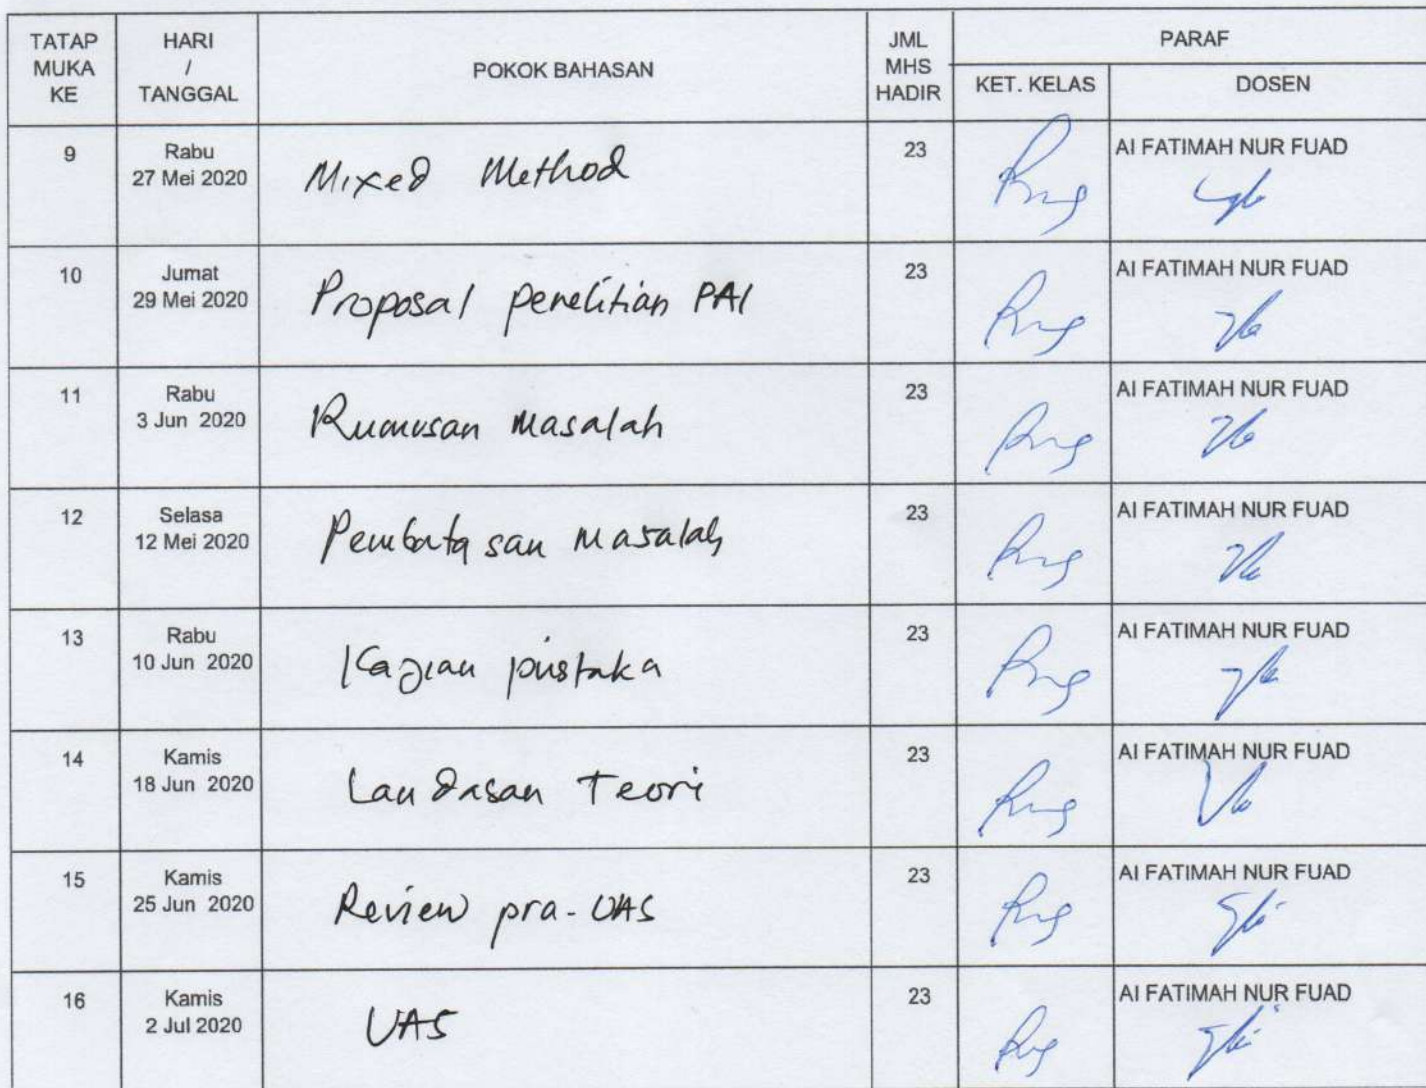 TATAP MUKA KE HARI / TANGGAL POKOK BAHASAN JML MHS HADIR PARAF
KET. KELAS DOSEN
9 Rabu 27 Mei 2020 Mixed Method 23 AI FATIMAH NUR FUAD
10 Jumat 29 Mei 2020 Proposal penelitian PAI 23 AI FATIMAH NUR FUAD
11 Rabu 3 Jun 2020 Rumusan Masalah 23 AI FATIMAH NUR FUAD
12 Selasa 12 Mei 2020 Pembatasan Masalah 23 AI FATIMAH NUR FUAD
13 Rabu 10 Jun 2020 Kajian pustaka 23 AI FATIMAH NUR FUAD
14 Kamis 18 Jun 2020 Landasan Teori 23 AI FATIMAH NUR FUAD
15 Kamis 25 Jun 2020 Review pra-UAS 23 AI FATIMAH NUR FUAD
16 Kamis 2 Jul 2020 UAS 23 AI FATIMAH NUR FUAD